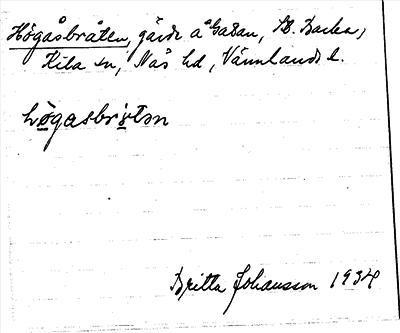 Högåsbråten, gärde å Gatan, St. Backa,
Kila sn, Näs hd, Värmlands l.
högasbrotən
Britta Johansson 1934